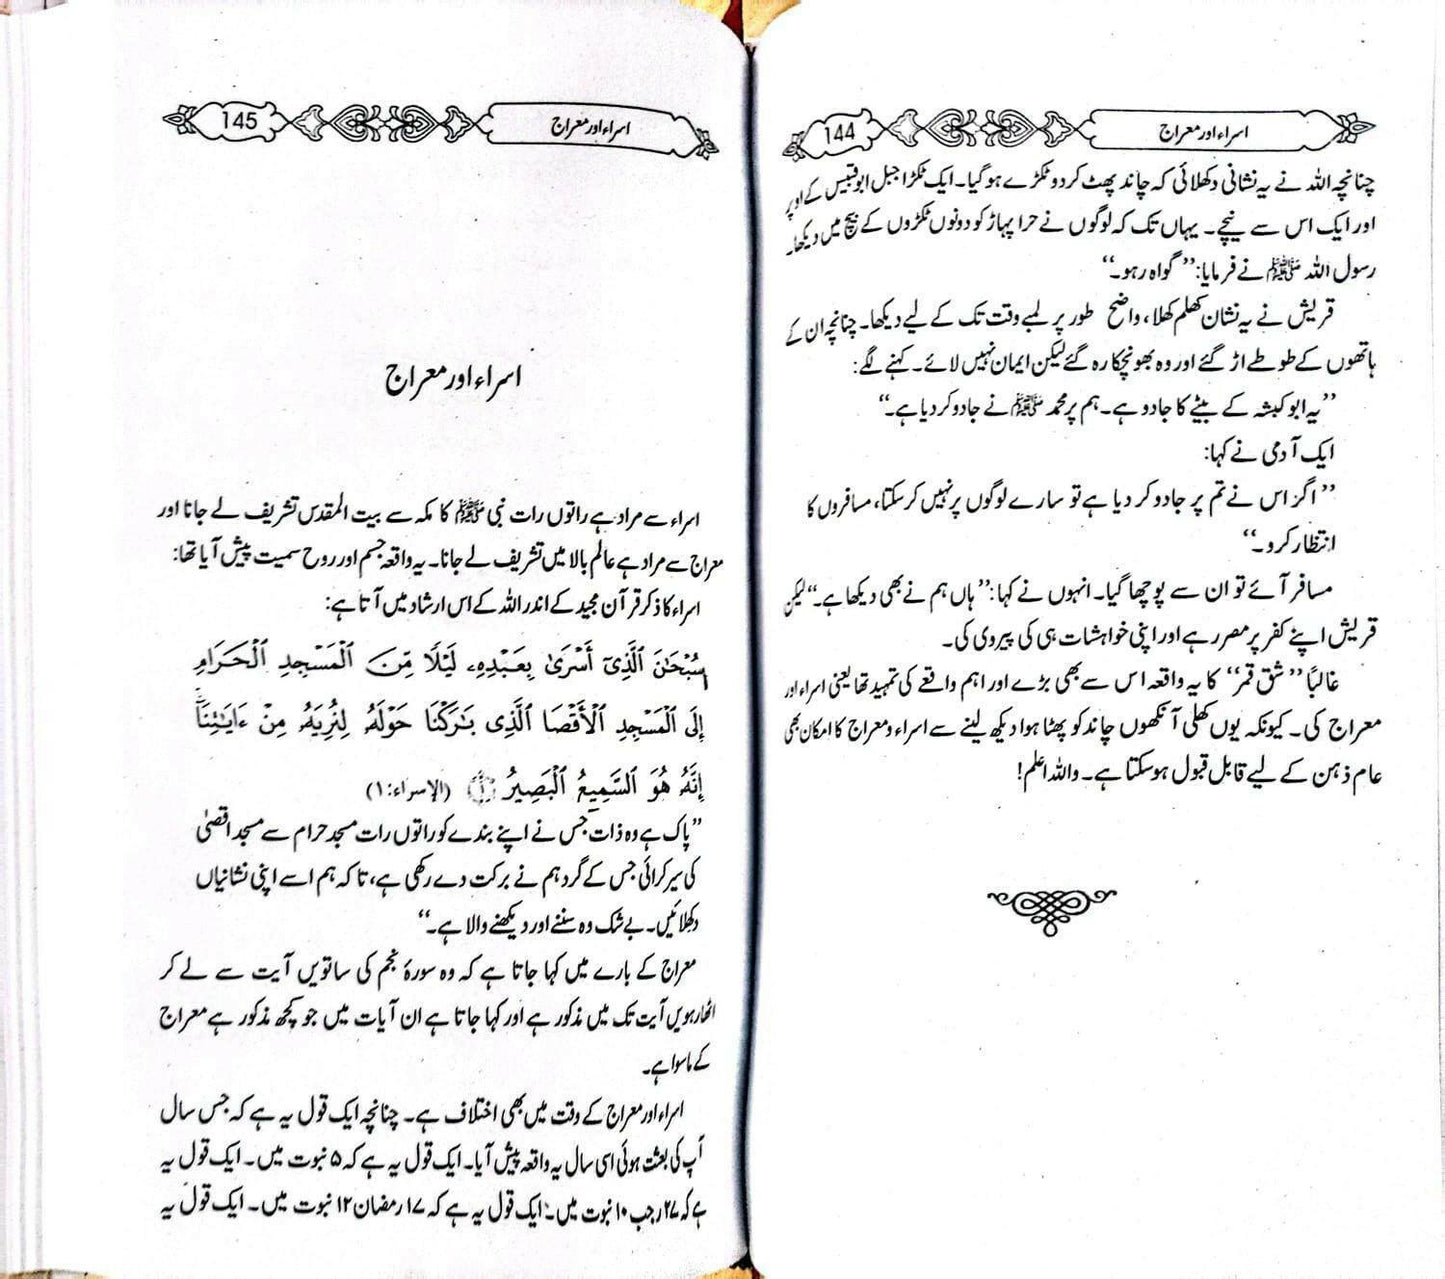 اسراء اور معراج
144
چنانچہ اللہ نے یہ نشانی دکھلائی کہ چاند پھٹ کر دو ٹکڑے ہوگیا۔ ایک ٹکڑا جبل ابوقبیس کے اوپر
اور ایک اس سے نیچے۔ یہاں تک کہ لوگوں نے حرا پہاڑ کو دونوں ٹکڑوں کے بیچ میں دیکھا۔
رسول اللہ ﷺ نے فرمایا: ’’گواہ رہو۔‘‘
قریش نے یہ نشان کھلم کھلا، واضح طور پر لمبے وقت تک کے لیے دیکھا۔ چنانچہ ان کے
ہاتھوں کے طوطے اڑ گئے اور وہ بھونچکا رہ گئے لیکن ایمان نہیں لائے۔ کہنے لگے:
’’یہ ابو کبشہ کے بیٹے کا جادو ہے۔ ہم پر محمد ﷺ نے جادو کر دیا ہے۔‘‘
ایک آدمی نے کہا:
’’اگر اس نے تم پر جادو کر دیا ہے تو سارے لوگوں پر نہیں کر سکتا، مسافروں کا
انتظار کرو۔‘‘
مسافر آئے تو ان سے پوچھا گیا۔ انہوں نے کہا: ’’ہاں ہم نے بھی دیکھا ہے۔‘‘ لیکن
قریش اپنے کفر پر مصر رہے اور اپنی خواہشات ہی کی پیروی کی۔
غالبًا ’’شق قمر‘‘ کا یہ واقعہ اس سے بھی بڑے اور اہم واقعے کی تمہید تھا یعنی اسراء اور
معراج کی۔ کیونکہ یوں کھلی آنکھوں چاند کو پھٹا ہوا دیکھ لینے سے اسراء و معراج کا امکان بھی
عام ذہن کے لیے قابل قبول ہوسکتا ہے۔ واللہ اعلم!
اسراء اور معراج
145
اسراء اور معراج
اسراء سے مراد ہے راتوں رات نبی ﷺ کا مکہ سے بیت المقدس تشریف لے جانا اور
معراج سے مراد ہے عالم بالا میں تشریف لے جانا۔ یہ واقعہ جسم اور روح سمیت پیش آیا تھا:
اسراء کا ذکر قرآن مجید کے اندر اللہ کے اس ارشاد میں آتا ہے:
سُبْحَٰنَ ٱلَّذِىٓ أَسْرَىٰ بِعَبْدِهِۦ لَيْلًا مِّنَ ٱلْمَسْجِدِ ٱلْحَرَامِ
إِلَى ٱلْمَسْجِدِ ٱلْأَقْصَا ٱلَّذِى بَٰرَكْنَا حَوْلَهُۥ لِنُرِيَهُۥ مِنْ ءَايَٰتِنَآ
إِنَّهُۥ هُوَ ٱلسَّمِيعُ ٱلْبَصِيرُ ۝١ (الإسراء:١)
’’پاک ہے وہ ذات جس نے اپنے بندے کو راتوں رات مسجد حرام سے مسجد اقصیٰ
کی سیر کرائی جس کے گرد ہم نے برکت دے رکھی ہے، تا کہ ہم اسے اپنی نشانیاں
دکھلائیں۔ بے شک وہ سننے اور دیکھنے والا ہے۔‘‘
معراج کے بارے میں کہا جاتا ہے کہ وہ سورۂ نجم کی ساتویں آیت سے لے کر
اٹھارہویں آیت تک میں مذکور ہے اور کہا جاتا ہے ان آیات میں جو کچھ مذکور ہے معراج
کے ماسوا ہے۔
اسراء اور معراج کے وقت میں بھی اختلاف ہے۔ چنانچہ ایک قول یہ ہے کہ جس سال
آپ کی بعثت ہوئی اسی سال یہ واقعہ پیش آیا۔ ایک قول یہ ہے کہ ۵ نبوت میں۔ ایک قول یہ
ہے کہ ۲۷ رجب ۱۰ نبوت میں۔ ایک قول یہ ہے کہ ۱۷ رمضان ۱۲ نبوت میں۔ ایک قول یہ